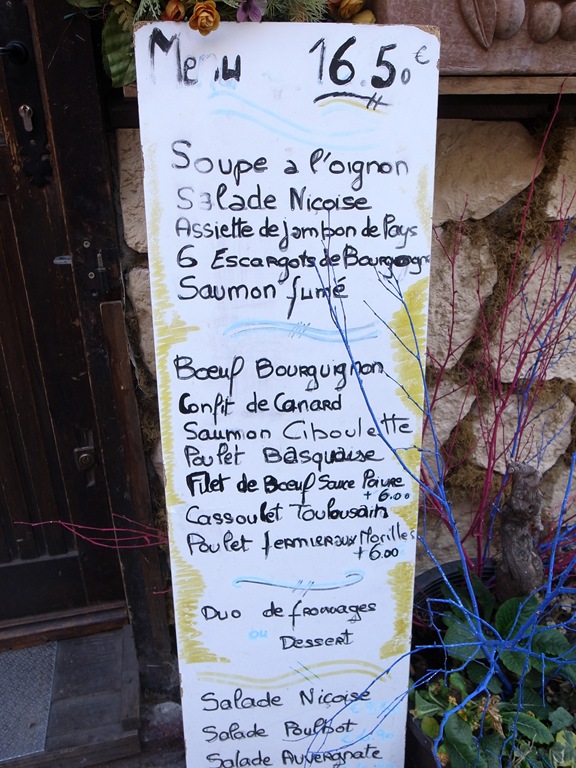 Menu 16.50 €
Soupe a l'oignon
Salade Niçoise
Assiette de jambon de Pays
6 Escargots de Bourgogne
Saumon fumé
Boeuf Bourguignon
Confit de Canard
Saumon Ciboulette
Poulet Basquaise
Filet de Boeuf Sauce Poivre
+ 6.00
Cassoulet Toulousain
Poulet fermier aux Morilles
+ 6.00
Duo de fromages
ou
Dessert
Salade Niçoise
Salade Poulbot
Salade Auvergnate